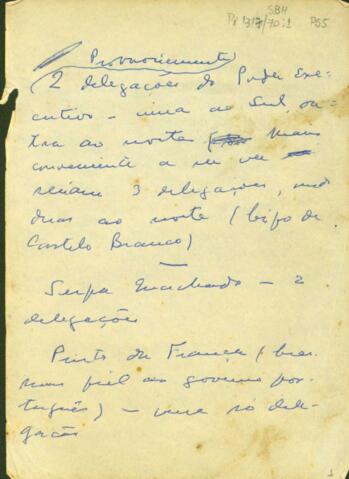 SBH
Pi 317/70:1 P55
Provavelmente
(2 delegações do Poder Exe-
cutivo – uma ao Sul, ou-
tra ao norte Mais
conveniente a seu ver
seriam 3 delegações,
duas ao norte (bispo de
Castelo Branco)
Serpa Machado – 2
delegações
Pinto da França (
fiel ao governo por-
tuguês) – uma só dele-
gação
1